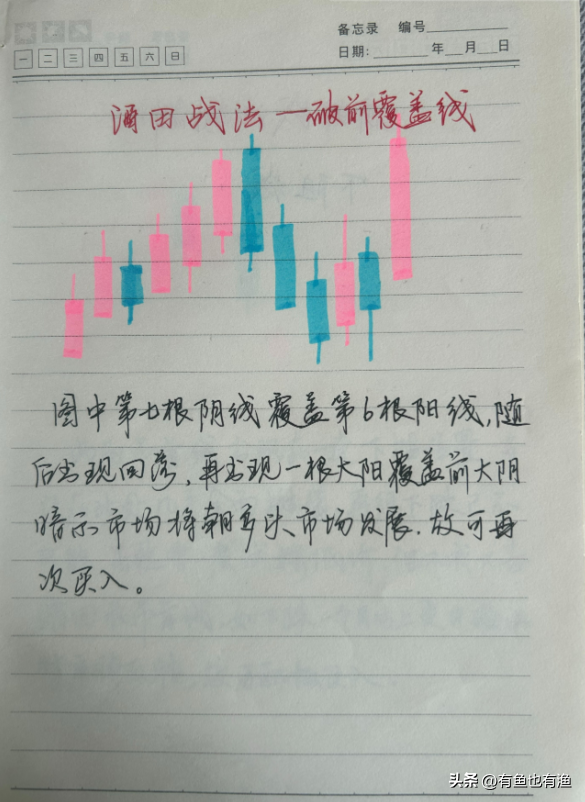 备忘录 编号
一 二 三 四 五 六 日
日期: 年 月 日
酒田战法一破前覆盖线
图中第七根阴线覆盖第6根阳线,随
后出现回落,再出现一根大阳覆盖前大阴
暗示市场将朝多头市场发展.故可再
次买入。
头条 @有鱼也有渔